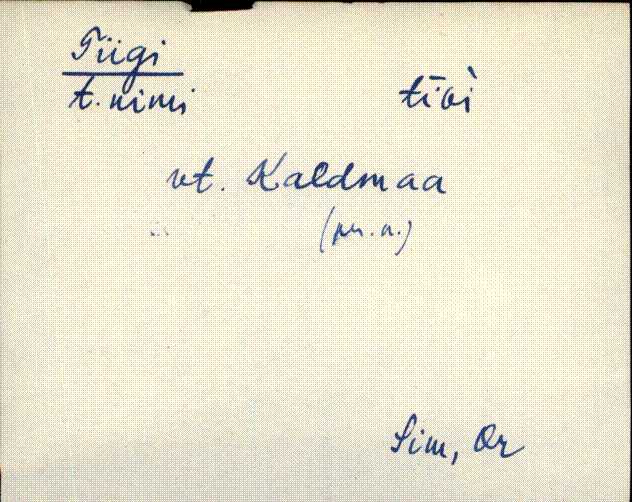 Tiigi
t. nimi tīɢì
vt. Kaldmaa
(pr. n.)
Sim, Or